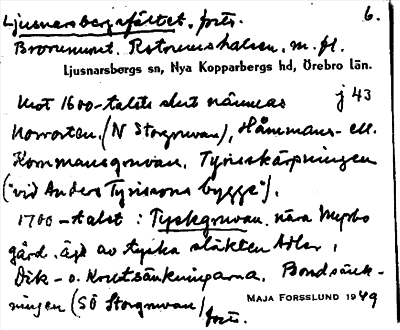 Ljusnarsbergsfältet, forts. 6.
Brorumont. Rotmushalsen. m. fl.
Ljusnarsbergs sn, Nya Kopparbergs hd, Örebro län.
Mot 1600-talets slut nämnas j 43
Norrorten. (N Storgruvan), Håmmans- ell.
Kommansgruvan. Tyrisskärpningen
("vid Anders Tyrissons bygge").
1700-talet: Tyskgruvan nära Myrbo
gård. ägd av tyska släkten Adler,
Dik- o. Krutsänkningarna. Bondsänk-
ningen (SÖ Storgruvan) forts.
MAJA FORSSLUND 1949